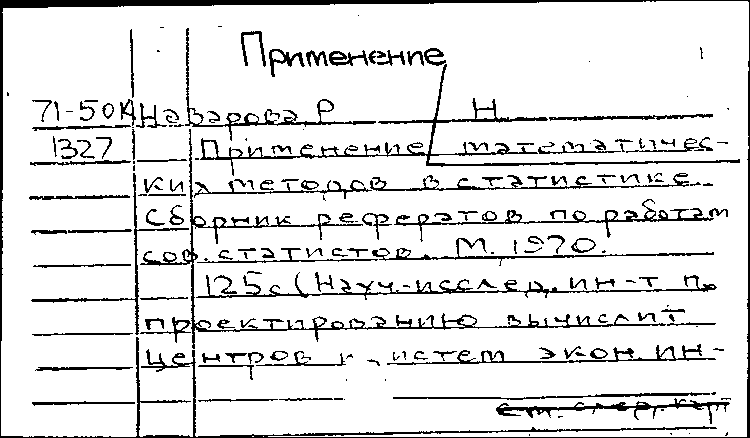 Применение
71-50К Назарова Р Н
1327 Применение математичес-
ких методов в статистике
Сборник рефератов по работам
сов. статистов. М. 1970.
125с (Науч-исслед. ин-т по
проектированию вычислит
центров и систем экон. ин-
см. след. карт